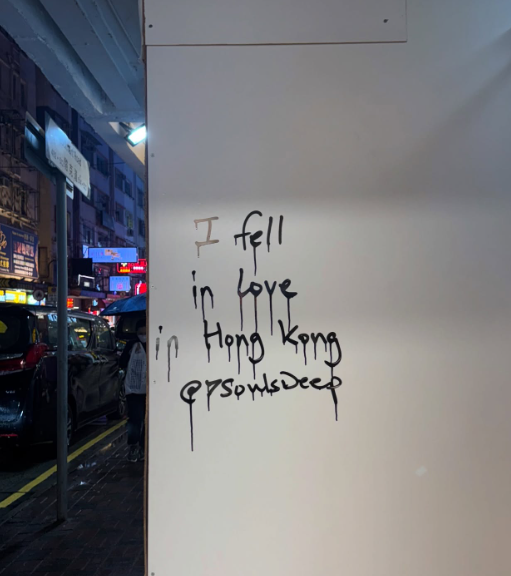 I fell
in love
in Hong Kong
@7SoulsDeep